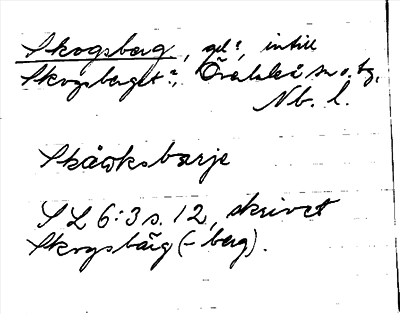 Skogsberg, gd?, intill
Skogsberget?, Överluleå sn o. tg,
Nb. l.
Skåωksbærje
SL 6:3 s. 12, skrivet
Skogsbärg (-berg).